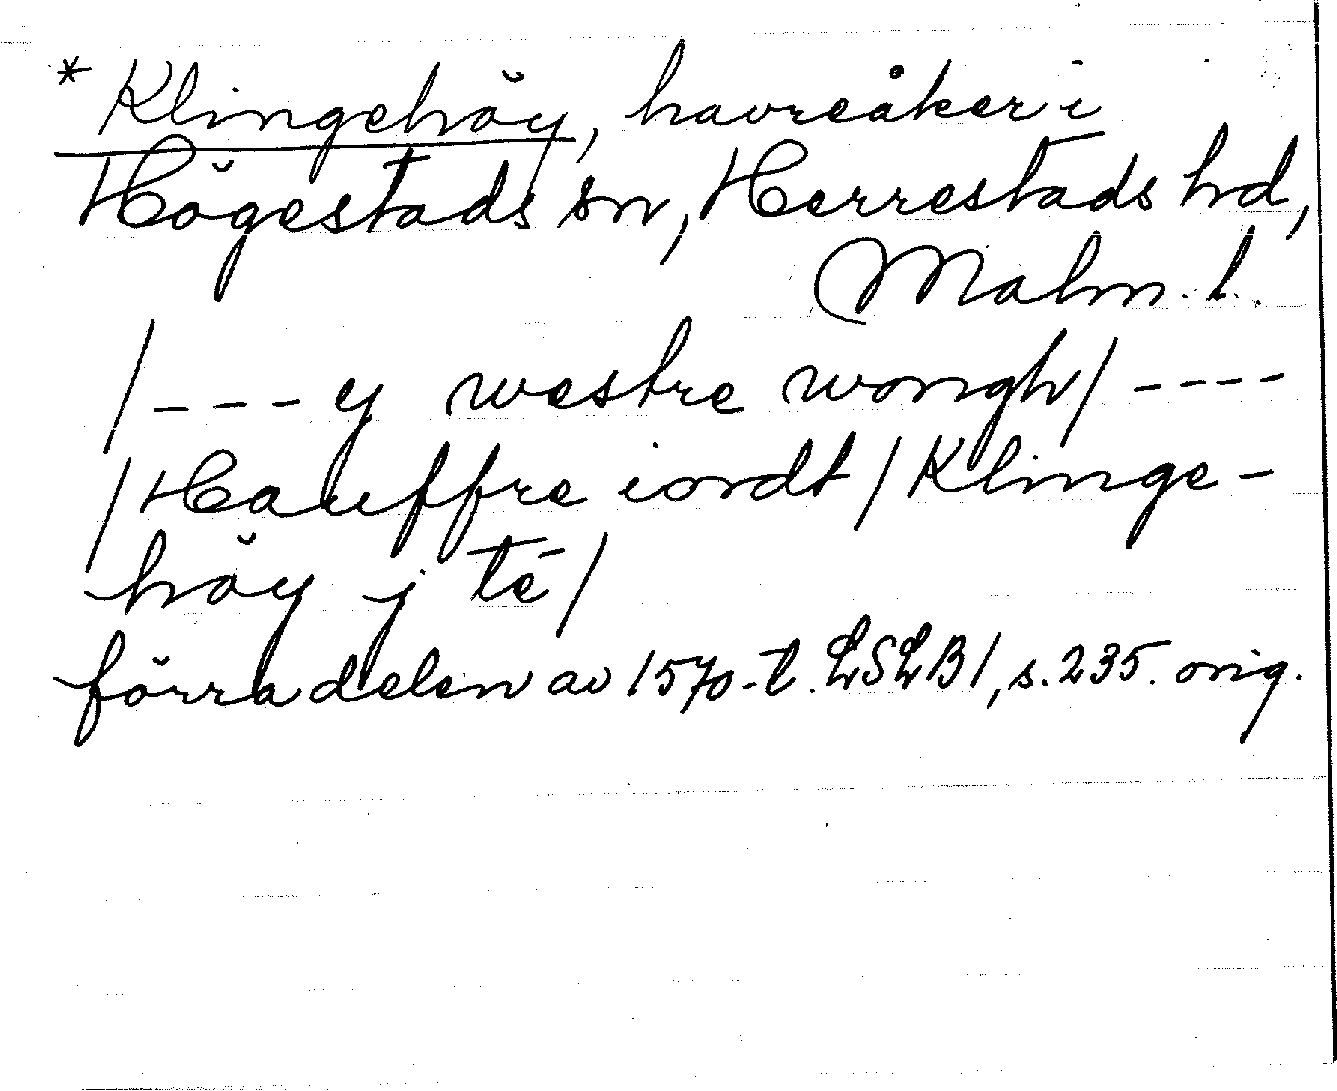 * Klingehöy, havreåker i
Högestads sn, Herrestads hd,
Malm. l.
/---y westre wongh/----
/Hauffre iordt/Klinge-
höy j tē/
förra delen av 1570-t. LSLB1, s. 235. orig.